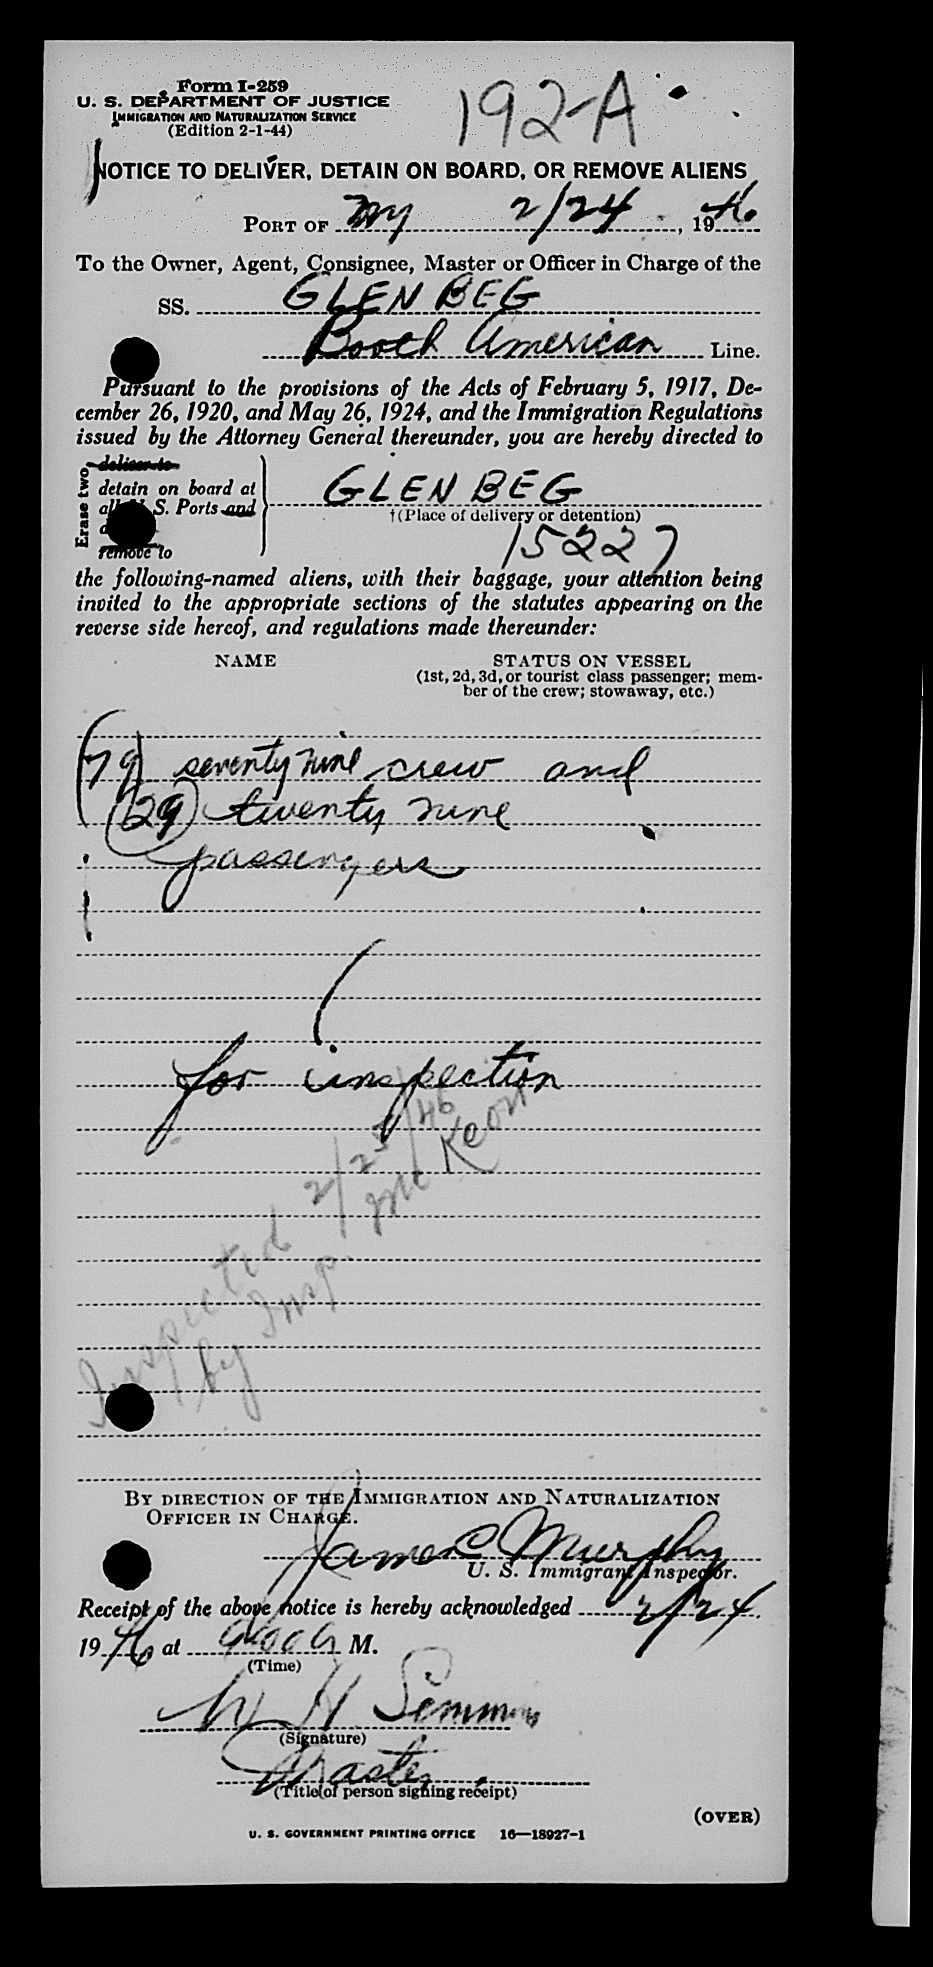 Form I-259
U. S. DEPARTMENT OF JUSTICE
IMMIGRATION AND NATURALIZATION SERVICE
(Edition 2-1-44)
192-A
NOTICE TO DELIVER, DETAIN ON BOARD, OR REMOVE ALIENS
PORT OF NY 2/24, 1946
To the Owner, Agent, Consignee, Master or Officer in Charge of the
SS. GLEN BEG
Booth American Line.
Pursuant to the provisions of the Acts of February 5, 1917, De-
cember 26, 1920, and May 26, 1924, and the Immigration Regulations
issued by the Attorney General thereunder, you are hereby directed to
Erase two
deliver to
detain on board at
all U. S. Ports and
remove to
GLEN BEG
†(Place of delivery or detention)
15227
the following-named aliens, with their baggage, your attention being
invited to the appropriate sections of the statutes appearing on the
reverse side hereof, and regulations made thereunder:
NAME STATUS ON VESSEL
(1st, 2d, 3d, or tourist class passenger; mem-
ber of the crew; stowaway, etc.)
(79) seventy nine crew and
(29) twenty nine
passengers
for inspection
Inspected 2/25/46
by Insp. McKeon
BY DIRECTION OF THE IMMIGRATION AND NATURALIZATION
OFFICER IN CHARGE.
James C Murphy
U. S. Immigrant Inspector.
Receipt of the above notice is hereby acknowledged 2/24,
1946, at M.
(Time)
W H Simmons
(Signature)
Master
(Title of person signing receipt)
(OVER)
U. S. GOVERNMENT PRINTING OFFICE 16—18927-1